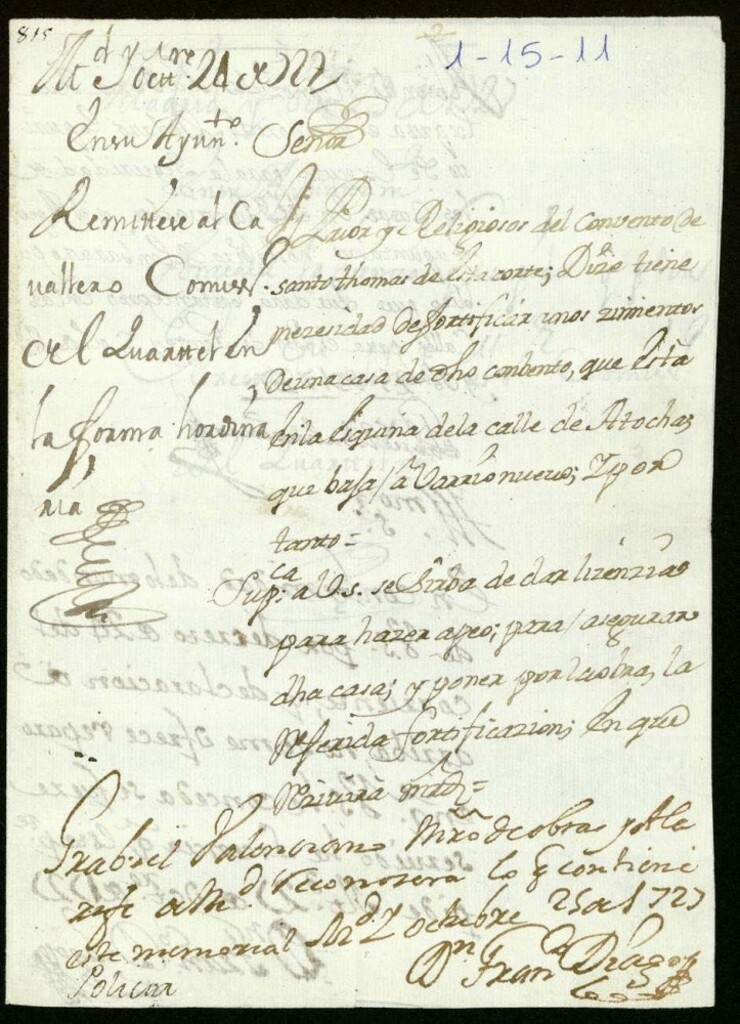 815
1-15-11
Md y octre 24 de 1727
En su Ayunto.
Remittese al Ca
vallero Comiss.
del Quarttel en
la forma hordina
ria
Señor
El Prior y Religiosos del Convento de
santo thomas de esta corte; Dize tiene
nezesidad de fortificar unos zimientos
De una casa de dho conbento, que Esta
En la Esquina de la calle de Atocha,
que baja a Barrio nuevo; Y por
tanto=
Supca. a V.s. se sirba de dar lizenzia
para hazer apeo; para asegurar
dha casa; y poner por la obra, la
Referida fortificazion; En que
Rezivira mrd=
Grabiel Valenziano Mro de obras y Ala
rife de Md. Reconozera lo q contiene
este memorial Md y Octubre 25 de 1727
Dn Franco
Policia